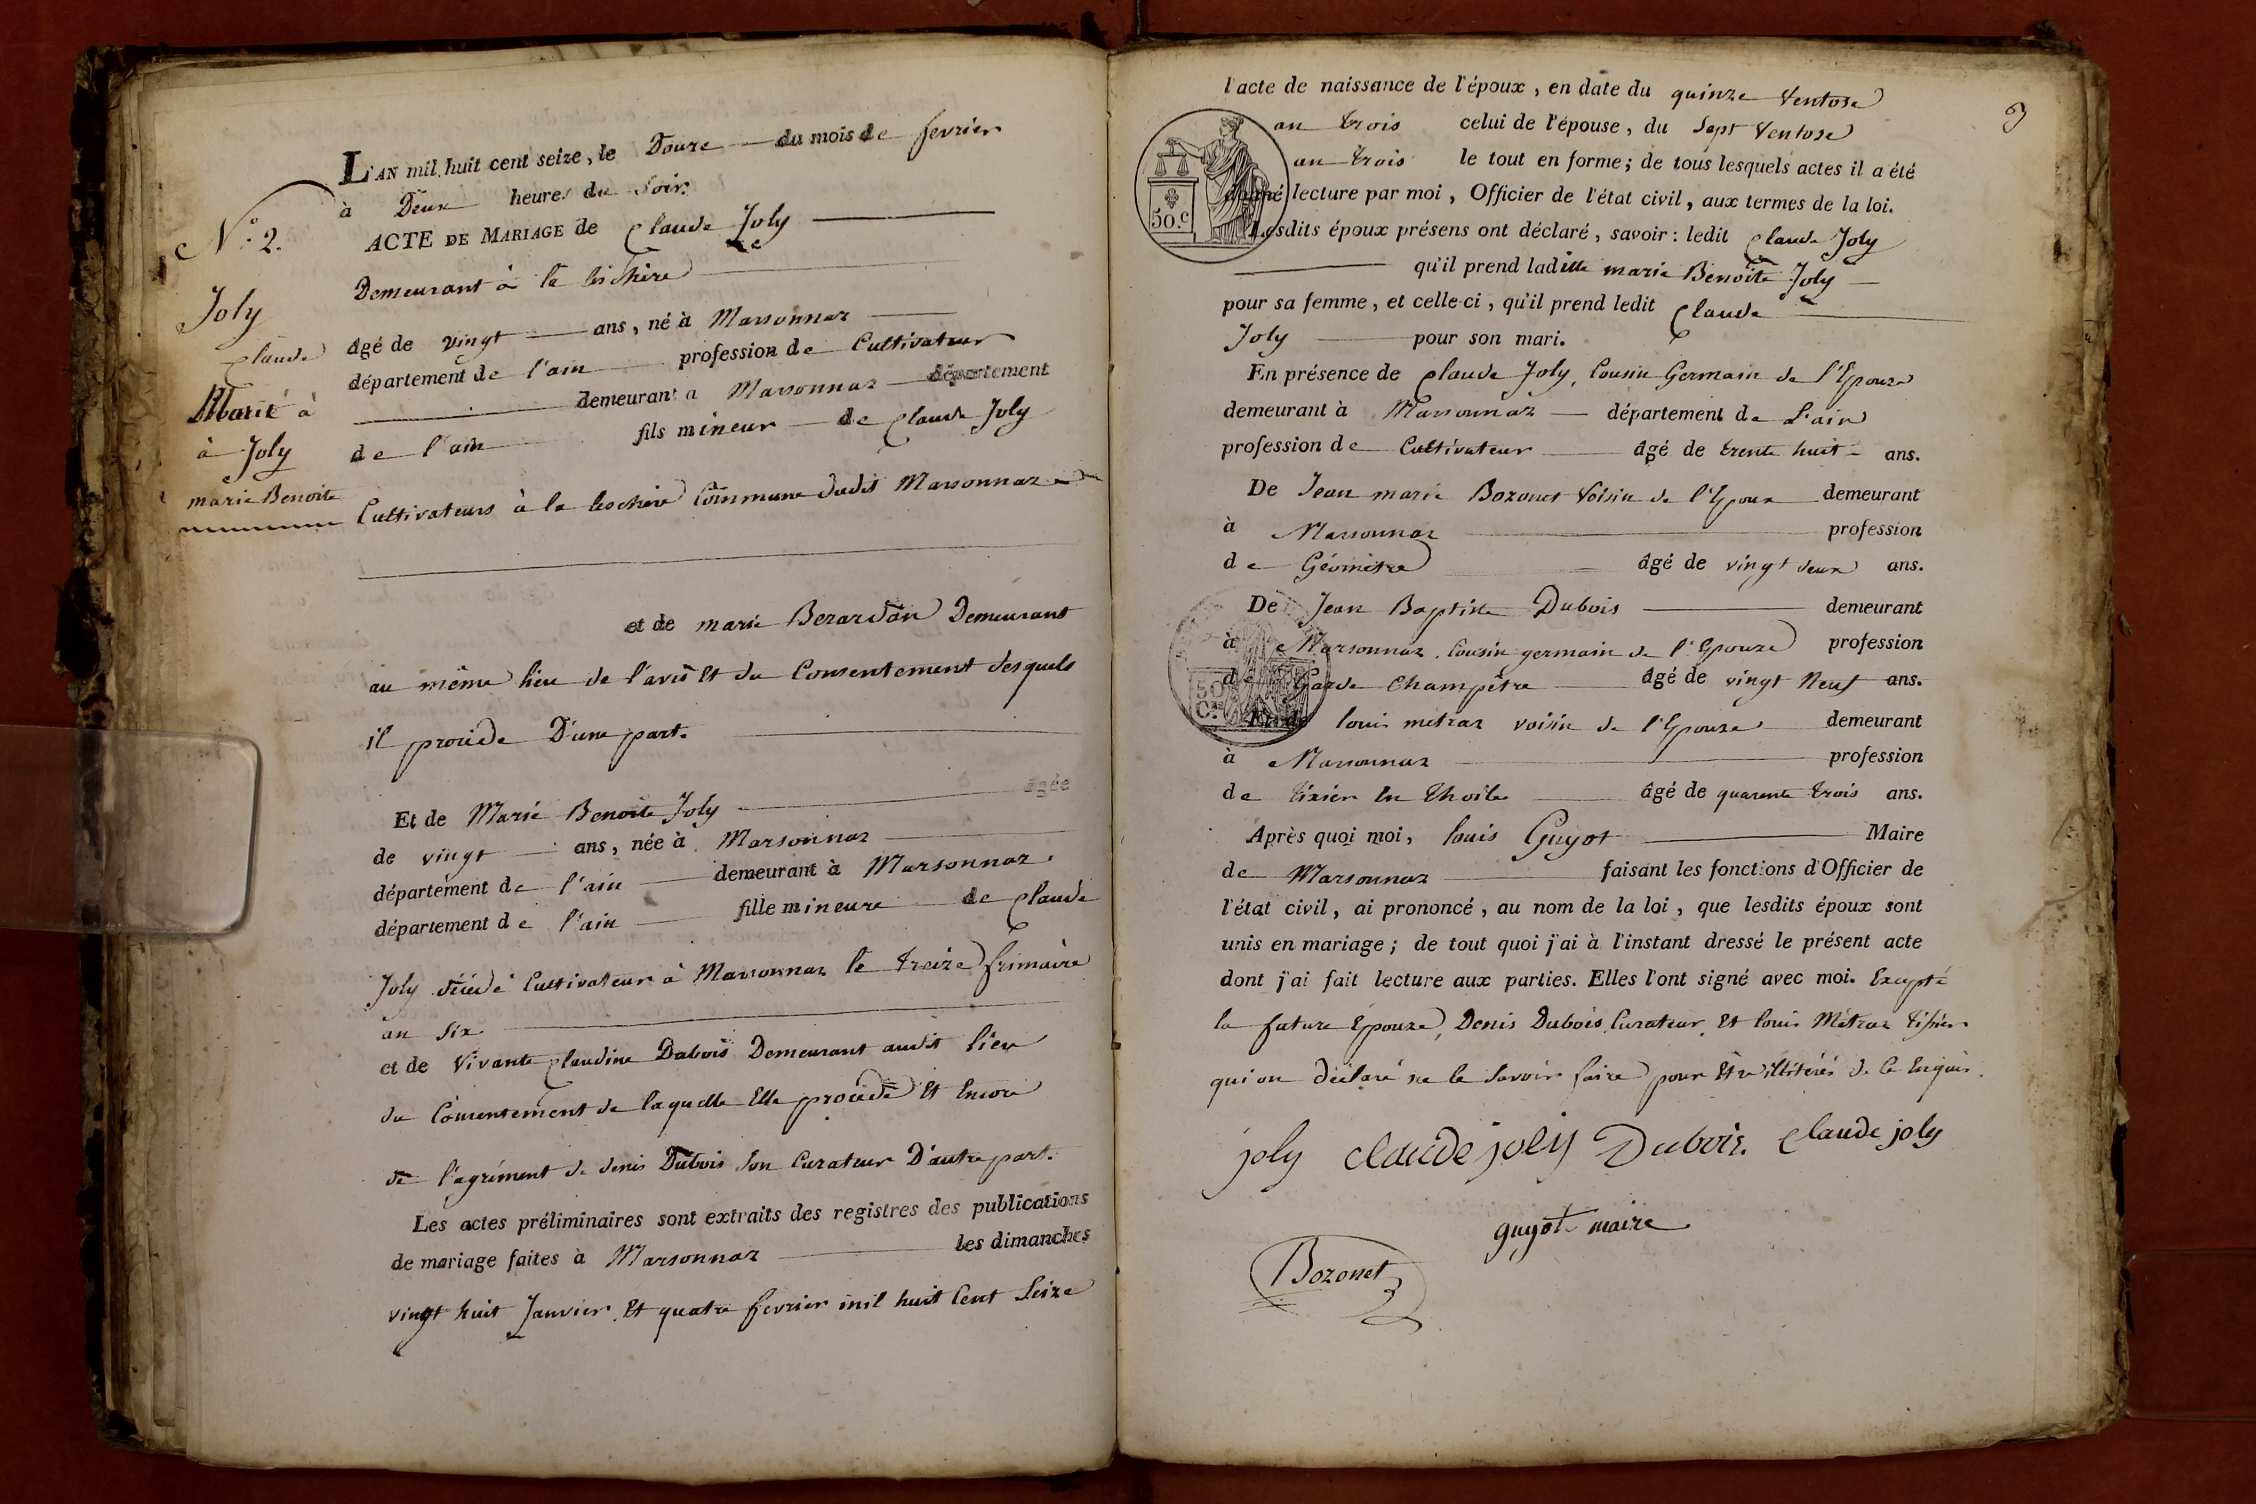 L'AN mil huit cent seize, le Douze du mois de fevrier
à Deux heures du Soir.
N.° 2.
ACTE DE MARIAGE de Claude Joly
Demeurant à la
Joly
Claude
âgé de vingt ans, né à Marsonnaz
département de l'ain profession de Cultivateur
Marié à
demeurant a Marsonnaz département
à Joly
de l'ain fils mineur de Claude Joly
marie Benoite
Cultivateurs à la Commune dudit Marsonnaz
et de marie Berardan Demeurant
au même lieu de l'avis Et du Consentement desquels
il procède D'une part.
Et de Marie Benoite Joly âgée
de vingt ans, née à Marsonnaz
département de l'ain demeurant à Marsonnaz.
département de l'ain fille mineure de Claude
Joly décédé Cultivateur à Marsonnaz le treize frimaire
an Six
et de Vivante Claudine Dubois Demeurant audit lieu
du Consentement de laquelle Elle procède Et Encore
de l'agrément de denis Dubois Son Curateur D'autre part.
Les actes préliminaires sont extraits des registres des publications
de mariage faites à Marsonnaz les dimanches
vingt huit Janvier Et quatre fevrier mil huit Cent Seize
3
l'acte de naissance de l'époux, en date du quinze Ventose
an trois celui de l'épouse, du Sept Ventose
an trois le tout en forme; de tous lesquels actes il a été
donné lecture par moi, Officier de l'état civil, aux termes de la loi.
50.c
Lesdits époux présens ont déclaré, savoir: ledit Claude Joly
qu'il prend laditte marie Benoite Joly
pour sa femme, et celle-ci, qu'il prend ledit Claude
Joly pour son mari.
En présence de Claude Joly, Cousin Germain de l'Epouze
demeurant à Marsonnaz département de L'ain
profession de Cultivateur âgé de trente huit ans.
De Jean marie Bozonet Voisin de l'Epoux demeurant
à Marsonnaz profession
de Géomètre âgé de vingt deux ans.
De Jean Baptiste Dubois demeurant
à Marsonnaz. Cousin germain de l'Epouze profession
de Garde Champêtre âgé de vingt Neuf ans.
50
Et de louis metraz voisin de l'Epouze demeurant
à Marsonnaz profession
de tixier En thoile âgé de quarente trois ans.
Après quoi moi, louis Guyot Maire
de Marsonnaz faisant les fonctions d'Officier de
l'état civil, ai prononcé, au nom de la loi, que lesdits époux sont
unis en mariage; de tout quoi j'ai à l'instant dressé le présent acte
dont j'ai fait lecture aux parties. Elles l'ont signé avec moi. Excepté
la future Epouze, Denis Dubois Curateur Et louis Métraz
qui on déclaré ne le Savoir faire pour Etre illitérés de ce Enquis.
joly claude joly Dubois. claude joly
guyot maire
Bozonet